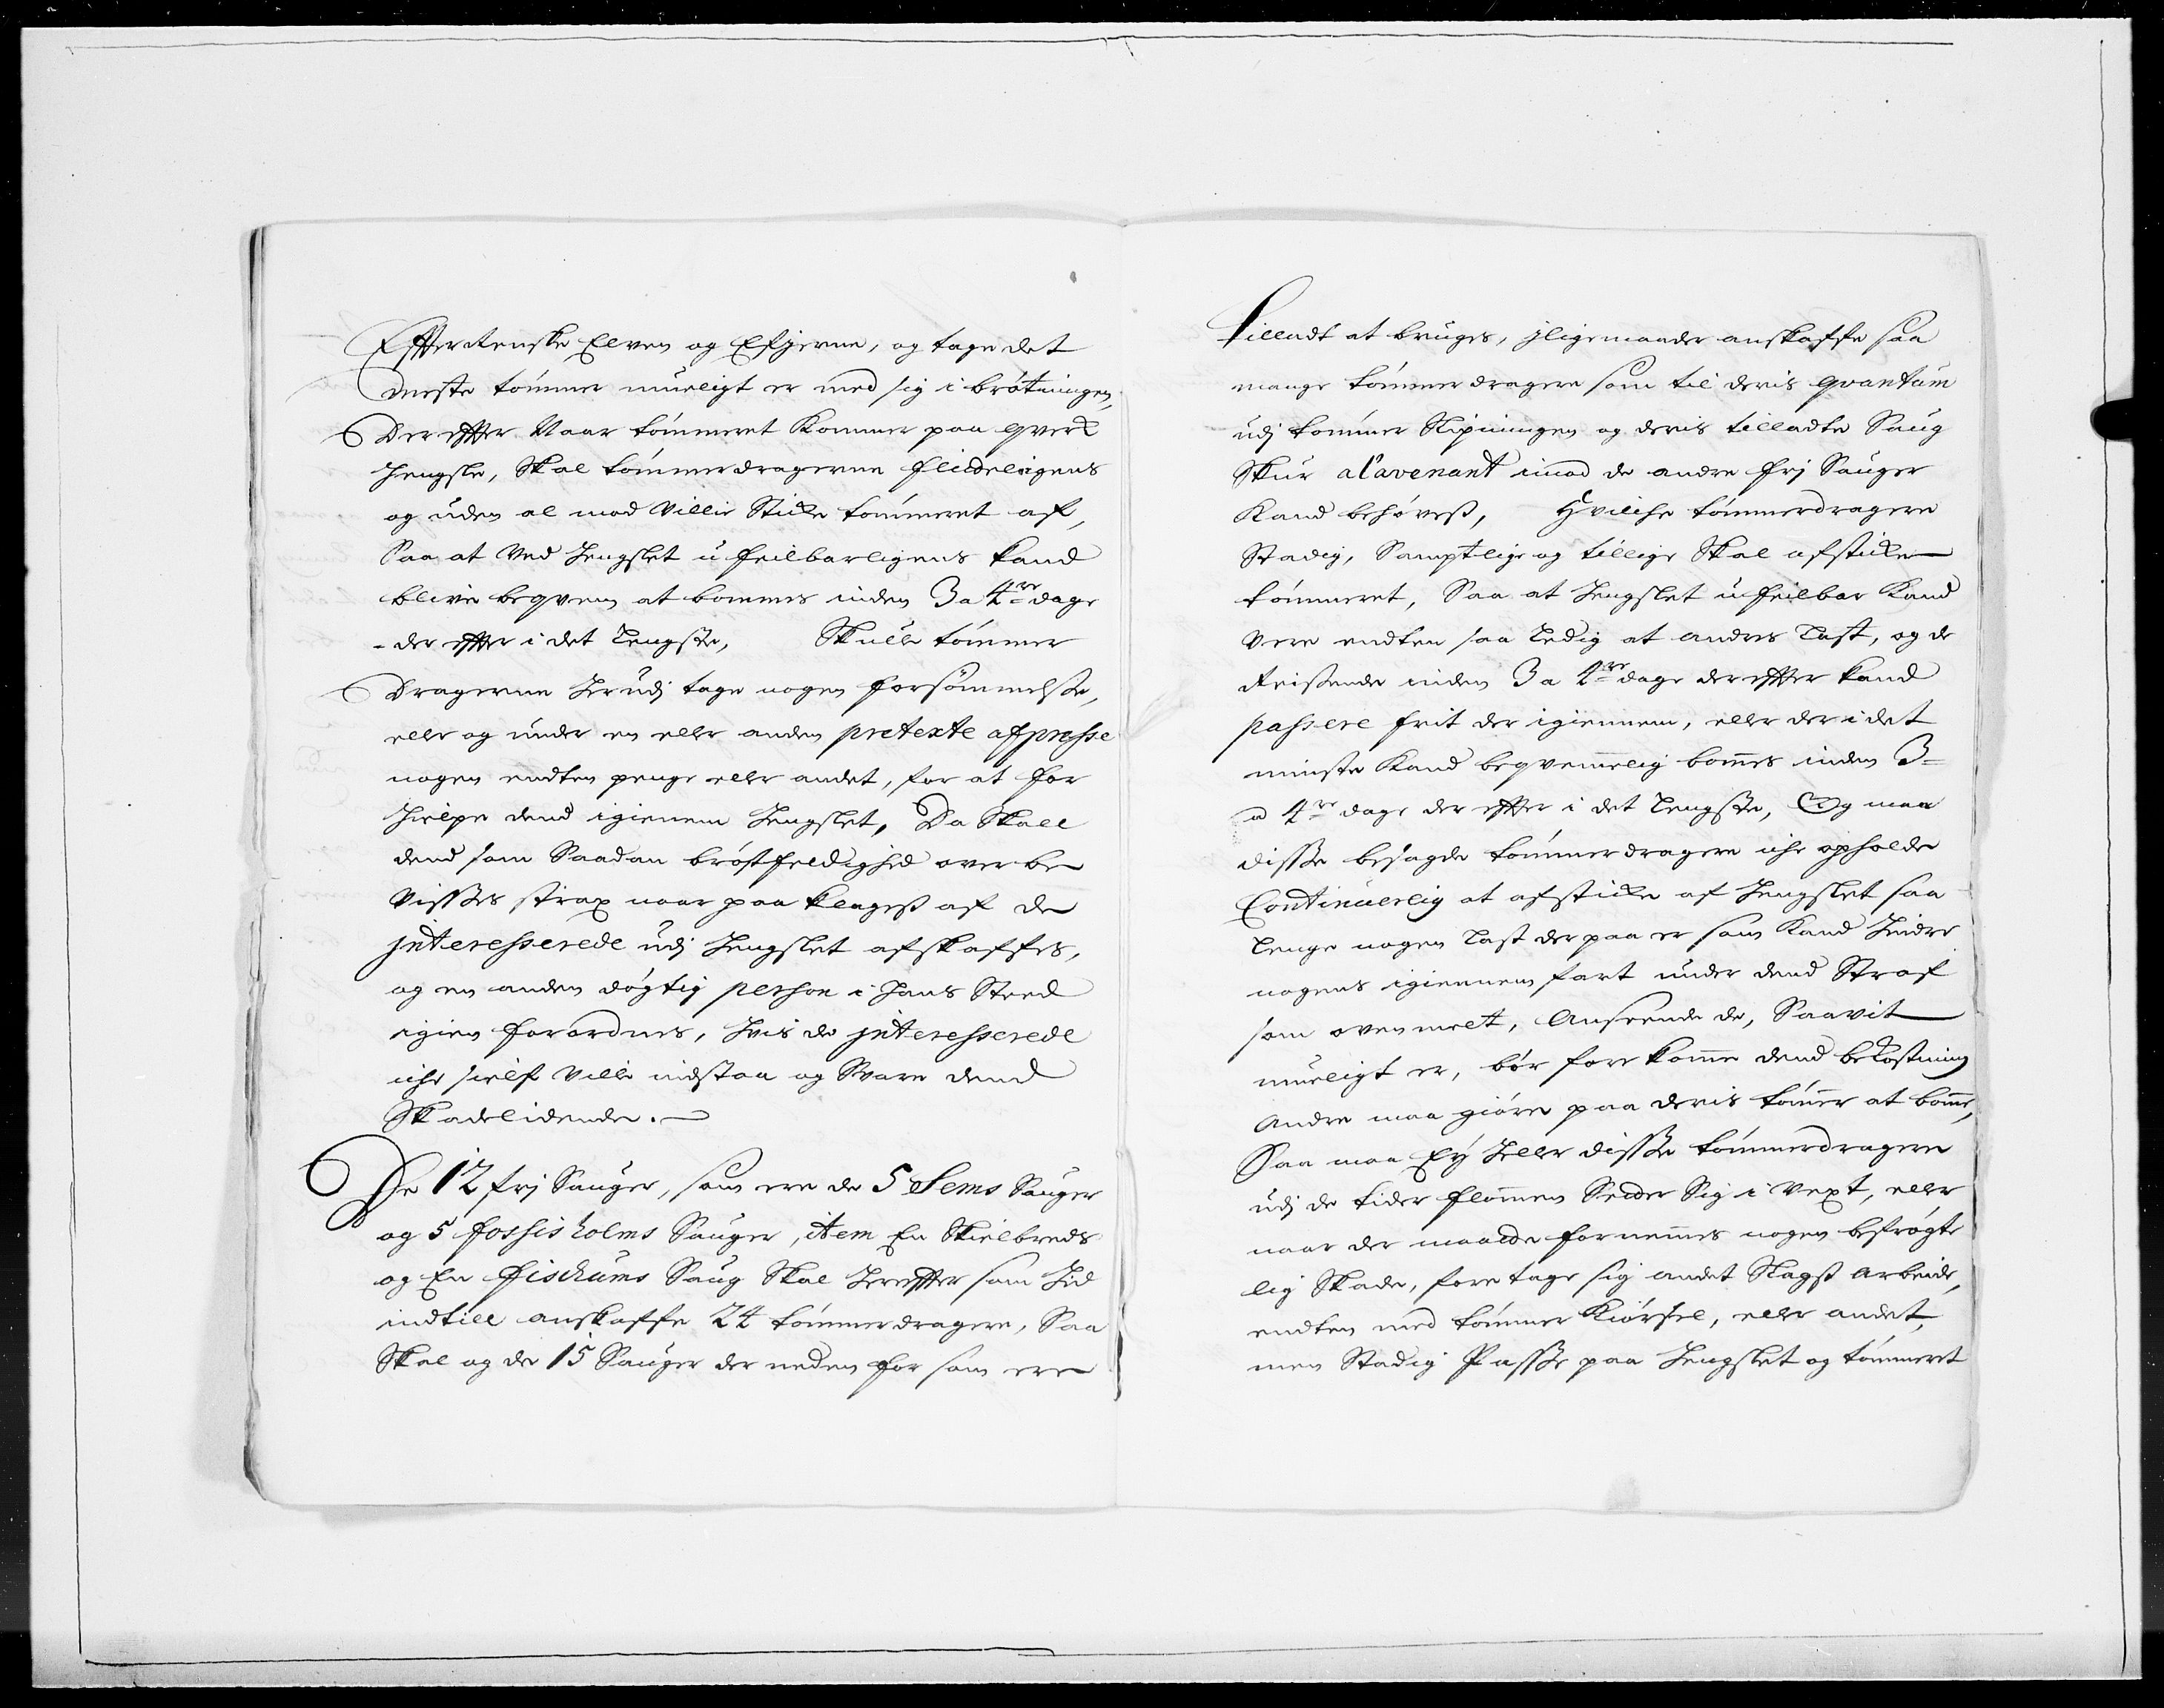 Effterrenske Elven og Efjerne, og tage det
meste tømmer mueligt er med sig i brøtningen,
Der effter Naar tømmeret Kommer paa qverk
Hengsle, Skal tømmerdragerne flideligens
og uden al mod Villie Stikke tømmeret af,
Saa at Ved Hengslet u feilbarligens kand
blive beqvem at bommes inden 3 a 4re dage
der effter i det Lengste, Skulle tømmer
Dragerne her udj tage nogen forsømmelse,
eller og under en eller anden pretexte afpresse
nogen endten penge eller andet, for at for
hielpe dend igienem Hengslet, Da Skall
dend som Saadan brøstfeldighed over be
Visses strax naar paa klagest af de
jnteresserede udj Hengslet afskaffes,
og en anden døgtig person i hans Sted
igien forordnes, hvis de jnteresserede
iche sielf Ville indstaa og Svare dend
Skadelidende.
De 12 frj Sauger, som ere de 5 Sems Sauger
og 5 fossisholms Sauger, item En Skielbreds
og En fischums Saug Skal her effter som hid
indtill anskaffe 24 tømmerdragere, Saa
Skal og de 15 Sauger der neden for som ere
Tilladt at bruges, jligemaader anskaffe saa
mange tømmerdragere som til deris qvantum
udj tømmer Klipningen og deris tilladte Saug
Skur al'avenant imod de andre frj Sauger
Kand behøvest, Hvilche tømmerdragere
Stadig, Samptlige og tillige Skal afstikke
tømmeret, Saa at Hengslet u feilbar Kand
Vere endten saa Ledig at andres Last, og de
Reisende inden 3 a 4re dage der effter kand
passere frit der igiennem, eller der i det
minste Kand beqvemmelig bommes inden 3
a 4re dage der effter i det Lengste, Og maa
disse besagde tømmerdragere iche opholde
Continuerlig at afstikke af Hengslet saa
Lenge nogen Last der paa er som Kand hindre
nogens igiennem fart under dend Straf
som oven melt, Anseende de, Saavit
mueligt er, bør fore komme dend bekostning
Andre maa giøre paa deris tømmer at bomme,
Saa maa Ey heller disse tømmerdragere
udj de tider flommen Setter Sig i Vext, eller
naar der maatte fornemmes nogen befrøgte
lig Skade, fore tage sig andet Slagst Arbeide,
endten med tømmer Kiørsel, eller andet,
men Stadig Passe paa Hengslet og tømmeret